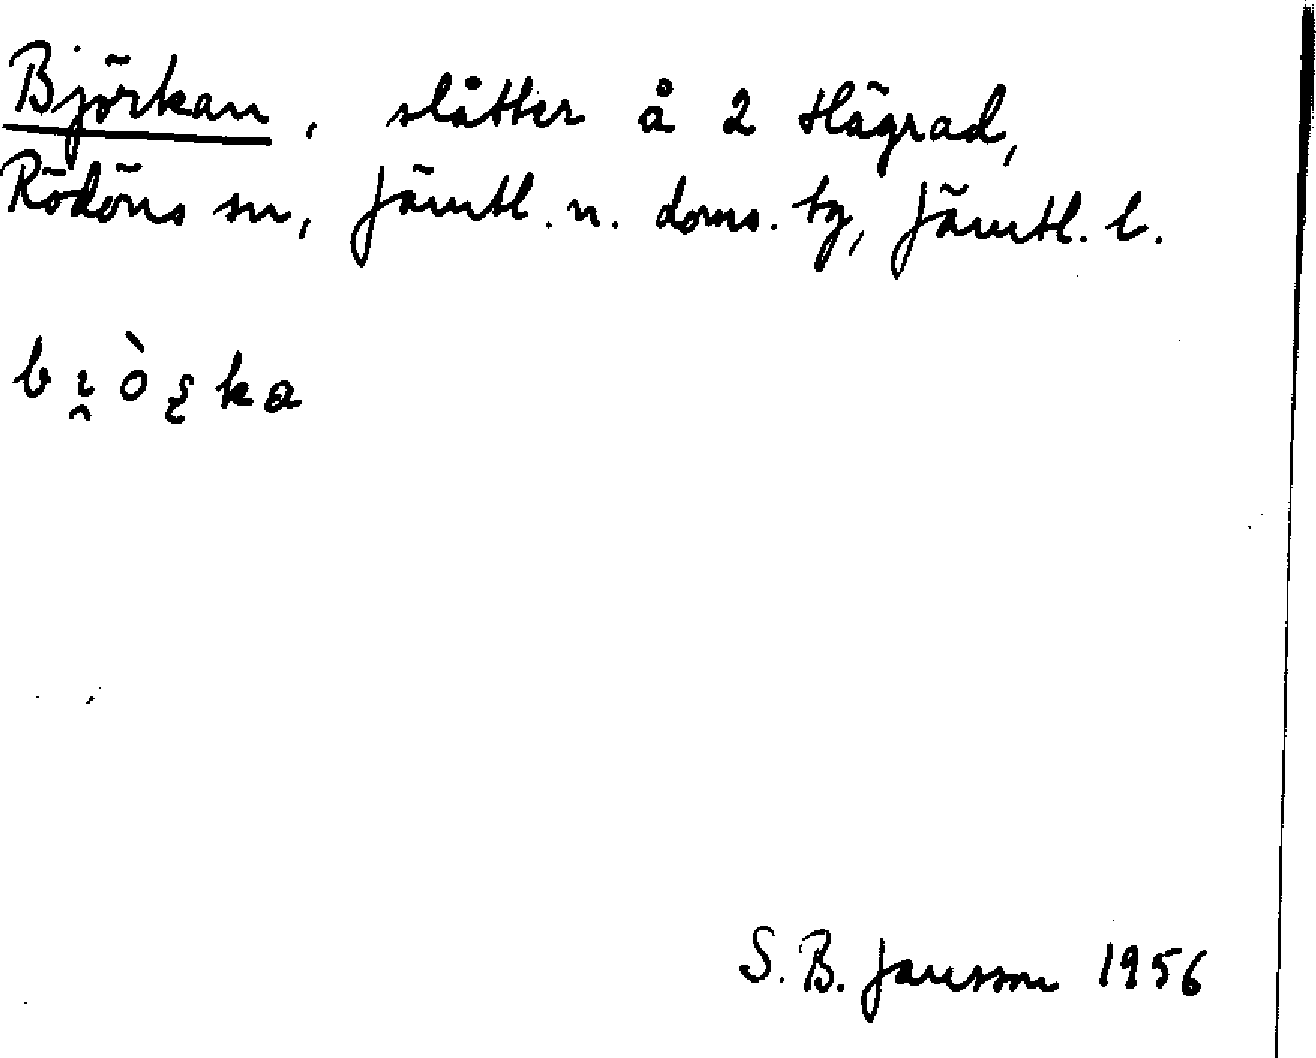 Björkan, slåtter å 2 Hägrad,
Rödöns sn, Jämtl. n. doms. tg, Jämtl. l.
S. B. Jansson 1956